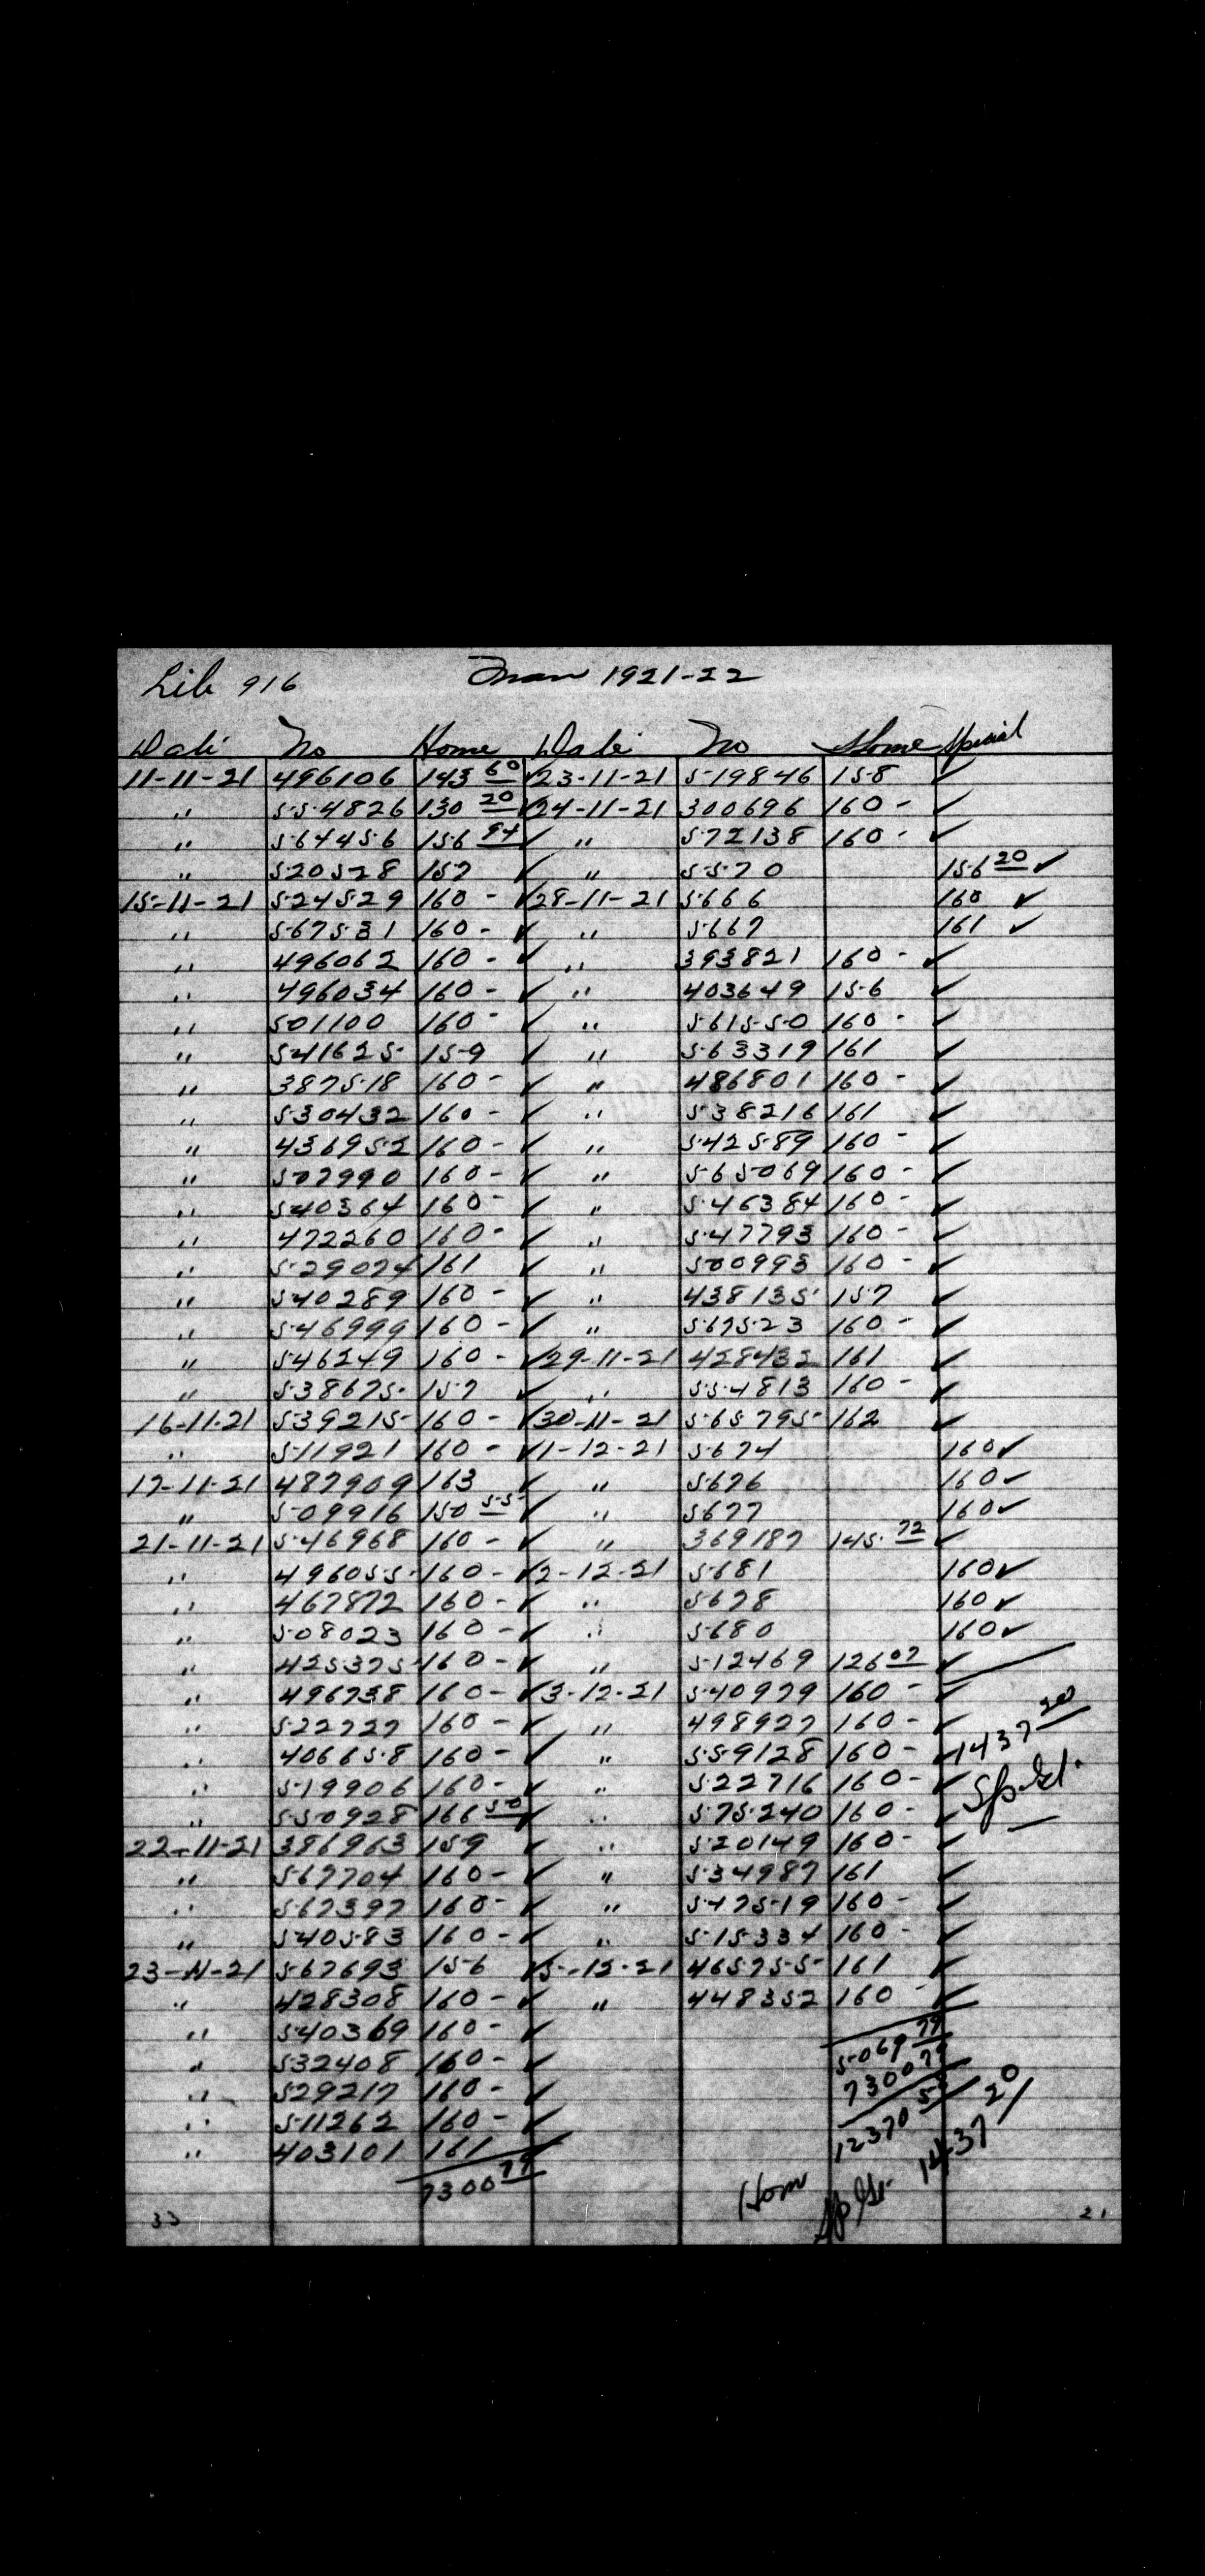 Lib 916 Man 1921-22
Date No Home Date No Home Special
11-11-21 496106 143 60 ✓ 23-11-21 519846 158 ✓
" 554826 130 20 ✓ 24-11-21 300696 160 - ✓
" 564456 156 94 ✓ " 572138 160 - ✓
" 520528 157 ✓ " 5570 156 20 ✓
15-11-21 524529 160 - ✓ 28-11-21 5666 160 ✓
" 567531 160 - ✓ " 5667 161 ✓
" 496062 160 - ✓ " 393821 160 - ✓
" 496034 160 - ✓ " 403649 156 ✓
" 501100 160 - ✓ " 561550 160 - ✓
" 541625 159 ✓ " 563319 161 ✓
" 387518 160 - ✓ " 486801 160 - ✓
" 530432 160 - ✓ " 538216 161 ✓
" 436952 160 - ✓ " 542589 160 - ✓
" 507990 160 - ✓ " 565069 160 - ✓
" 540364 160 - ✓ " 546384 160 - ✓
" 472260 160 - ✓ " 547793 160 - ✓
" 529074 161 ✓ " 500993 160 - ✓
" 540289 160 - ✓ " 438135 157 ✓
" 546999 160 - ✓ " 567523 160 - ✓
" 546249 160 - ✓ 29-11-21 428432 161 ✓
" 538675 157 ✓ " 554813 160 - ✓
16-11-21 539215 160 - ✓ 30-11-21 565795 162 ✓
" 511921 160 - ✓ 1-12-21 5674 160 ✓
17-11-21 487909 163 ✓ " 5676 160 ✓
" 509916 150 55 ✓ " 5677 160 ✓
21-11-21 546968 160 - ✓ " 369187 145 72 ✓
" 496055 160 - ✓ 2-12-21 5681 160 ✓
" 467872 160 - ✓ " 5678 160 ✓
" 508023 160 - ✓ " 5680 160 ✓
" 425375 160 - ✓ " 512469 126 07 ✓
" 496738 160 - ✓ 3-12-21 540979 160 - ✓
" 522727 160 - ✓ " 498927 160 - ✓
" 406658 160 - ✓ " 559128 160 - ✓ 1437 20
" 519906 160 - ✓ " 522716 160 - ✓
" 550928 166 50 ✓ " 575240 160 - ✓
22-11-21 386963 159 ✓ " 520149 160 - ✓
" 567704 160 - ✓ " 534987 161 ✓
" 567397 160 - ✓ " 547519 160 - ✓
" 540583 160 - ✓ " 515334 160 - ✓
23-11-21 567693 156 ✓ 5-12-21 465755 161 ✓
" 428308 160 - ✓ " 448352 160 - ✓
" 540369 160 - ✓ 5069 79
" 532408 160 - ✓ 7300 79
" 529217 160 - ✓
" 511262 160 - ✓ 12370 58
" 403101 161 ✓ 1437 20
7300 79 Hom Sp Gr
21